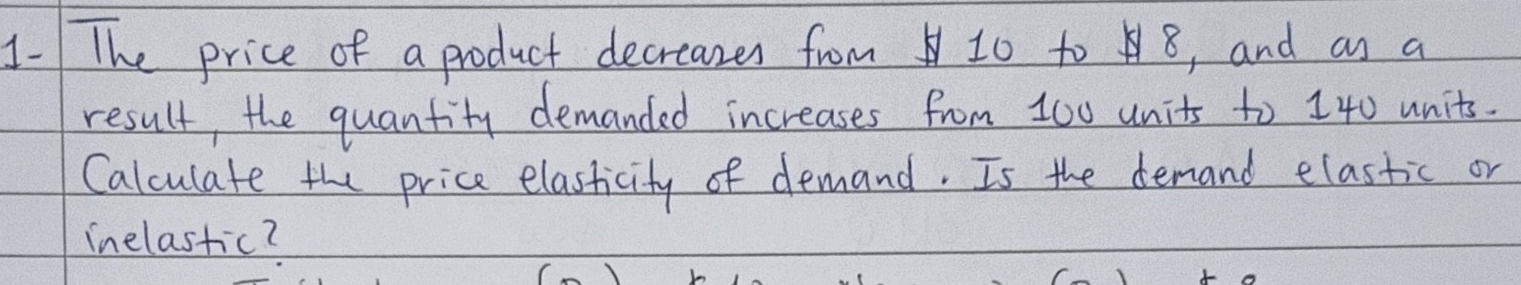 1- The price of a product decreases from $ 10 to $ 8, and as a
result, the quantity demanded increases from 100 units to 140 units.
Calculate the price elasticity of demand. Is the demand elastic or
inelastic?